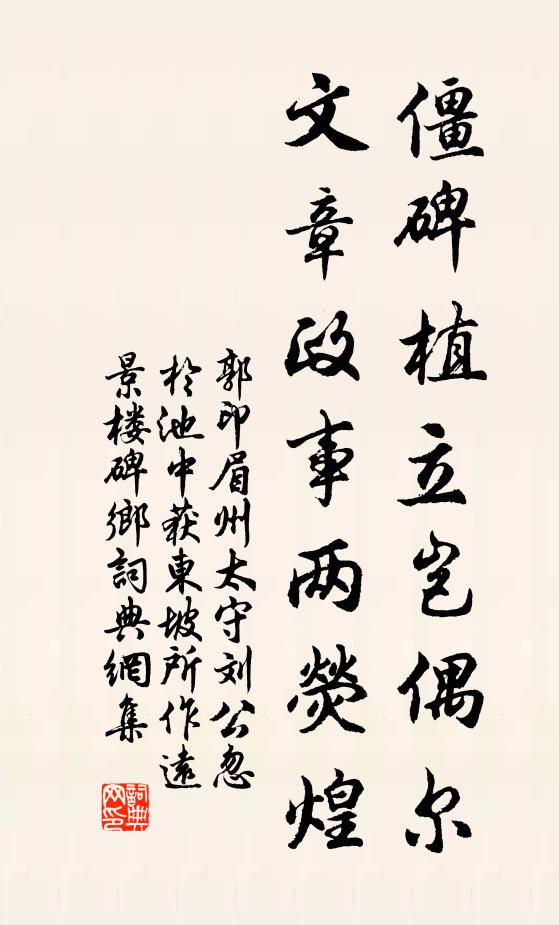 僵碑植立岂偶尔
文章政事两熒煌
郭印眉州太守刘公忽
於池中获東坡所作遠
景楼碑鄉詞典網集
詞典
网印